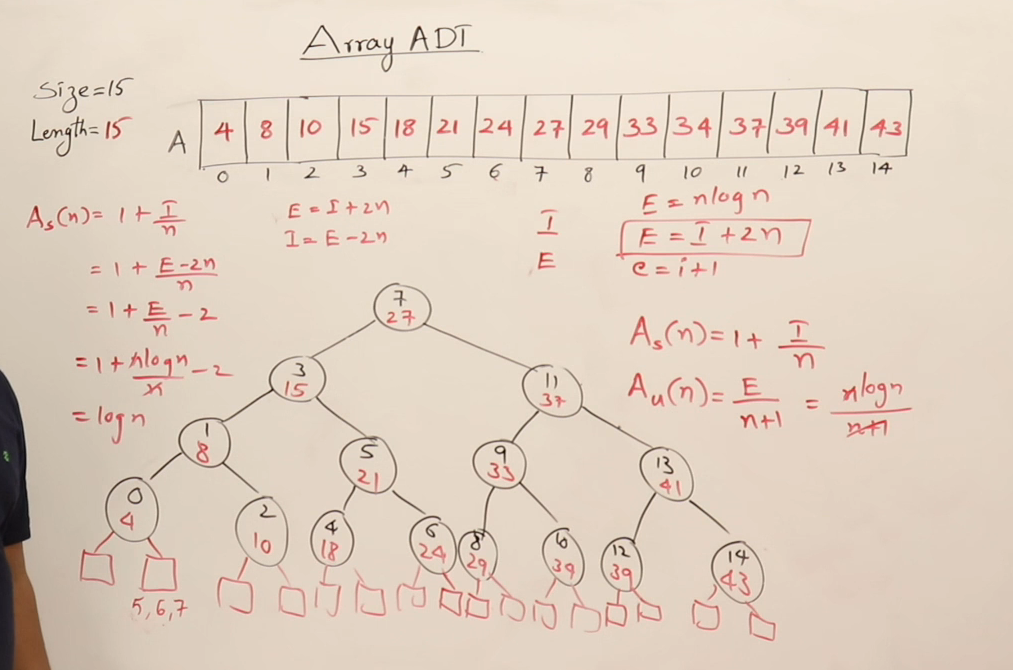 Array ADT
Size=15
Length=15
A 4 8 10 15 18 21 24 27 29 33 34 37 39 41 43
0 1 2 3 4 5 6 7 8 9 10 11 12 13 14
As(n)= 1+ I/n
= 1+ E-2n/n
= 1+ E/n - 2
= 1+ nlogn/n - 2
= logn
E = I+2n
I = E-2n
I
E
E = nlogn
E = I +2n
e = i+1
As(n)= 1+ I/n
Au(n)= E/n+1 = nlogn/n+1
7
27
3
15
11
37
1
8
5
21
9
33
13
41
0
4
2
10
4
18
6
24
8
29
6
39
12
39
14
43
5,6,7